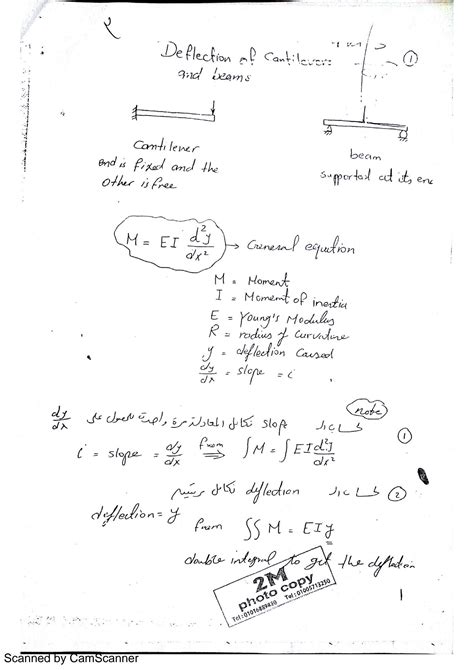 Deflection of Cantilevers
and beams
①
Cantilever
end is fixed and the
other is free
beam
supported at its end
M = EI d²y/dx² → General equation
M = Moment
I = Moment of inertia
E = Young's Modulus
R = radius of curvature
y = deflection caused
dy/dx = slope = i
note
① slope نكامل المعادلة مرة واحدة للحصول على dy/dx
i = slope = dy/dx from ⇒ ∫M = ∫EI d²y/dx²
② deflection نكامل مرتين
deflection = y
from ∬ M = EIy
double integral to get the deflection
2M
photo copy
1
Scanned by CamScanner